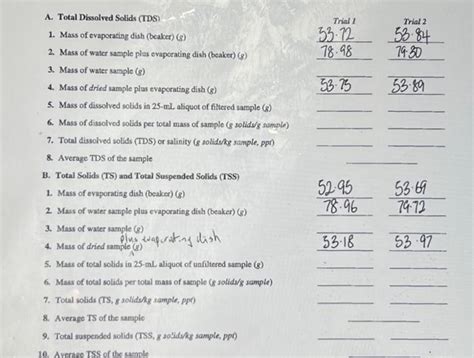 A. Total Dissolved Solids (TDS) Trial 1 Trial 2
1. Mass of evaporating dish (beaker) (g) 53.72 53.84
2. Mass of water sample plus evaporating dish (beaker) (g) 78.98 79.30
3. Mass of water sample (g)
4. Mass of dried sample plus evaporating dish (g) 53.75 53.89
5. Mass of dissolved solids in 25-mL aliquot of filtered sample (g)
6. Mass of dissolved solids per total mass of sample (g solids/g sample)
7. Total dissolved solids (TDS) or salinity (g solids/kg sample, ppt)
8. Average TDS of the sample
B. Total Solids (TS) and Total Suspended Solids (TSS)
1. Mass of evaporating dish (beaker) (g) 52.95 53.69
2. Mass of water sample plus evaporating dish (beaker) (g) 78.96 79.72
3. Mass of water sample (g)
plus evaporating dish
4. Mass of dried sample (g) 53.18 53.97
5. Mass of total solids in 25-mL aliquot of unfiltered sample (g)
6. Mass of total solids per total mass of sample (g solids/g sample)
7. Total solids (TS, g solids/kg sample, ppt)
8. Average TS of the sample
9. Total suspended solids (TSS, g solids/kg sample, ppt)
10. Average TSS of the sample